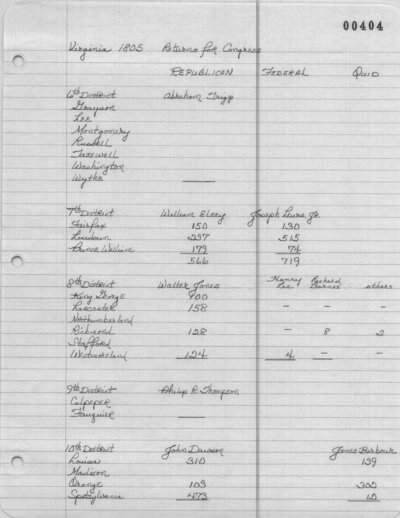 00404
Virginia 1805 Returns for Congress
REPUBLICAN FEDERAL QUID
6th District Abraham Trigg
Grayson
Lee
Montgomery
Russell
Tazewell
Washington
Wythe —
7th District William Elzey Joseph Lewis, Jr.
Fairfax 150 130
Loudoun 237 515
Prince William 179 74
566 719
8th District Walter Jones Henry Lee Richard Barnes others
King George 400
Lancaster 158 - - -
Northumberland
Richmond 128 - 8 2
Stafford
Westmoreland 124 4 - -
9th District Philip R. Thompson
Culpeper
Fauquier —
10th District John Dawson James Barbour
Louisa 310 139
Madison
Orange 103 302
Spotsylvania 473 10